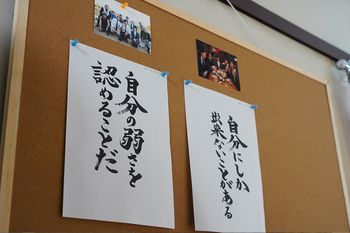 自分にしか
出来ないことがある
自分の弱さを
認めることだ